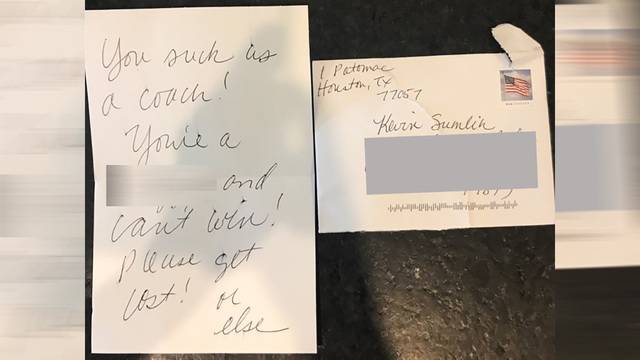 You suck as
a coach!
You're a
and
can't win!
Please get
lost! or
else
1 Potomac
Houston, Tx
77057
Kevin Sumlin